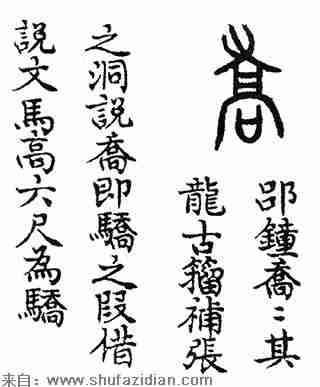 喬
邵鐘喬〻其
龍古籀補張
之洞説喬即驕之叚借
説文馬高六尺為驕
来自：www.shufazidian.com